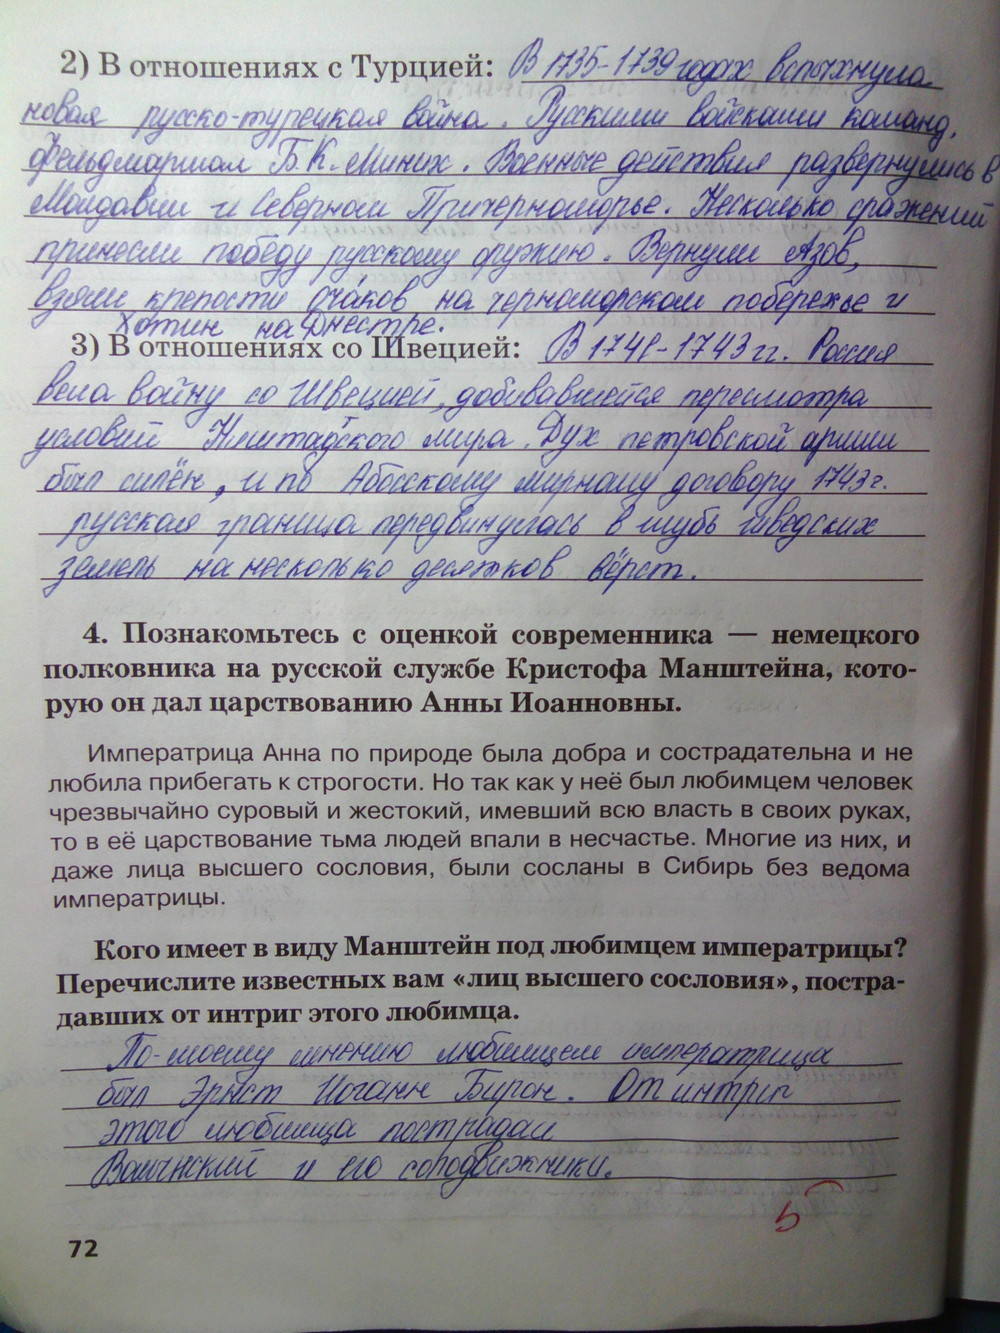 2) В отношениях с Турцией: В 1735-1739 годах вспыхнула
новая русско-турецкая война. Русскими войсками команд.
Фельдмаршал Б.К. Миних. Военные действия развернулись в
Молдавии и Северном Причерноморье. Несколько сражений
принесли победу русскому оружию. Вернули Азов,
взяли крепости Очаков на черноморском побережье и
Хотин на Днестре.
3) В отношениях со Швецией: В 1741-1743 гг. Россия
вела войну со Швецией, добивавшейся пересмотра
условий Ништадского мира. Дух петровской армии
был силён, и по Абосскому мирному договору 1743 г.
русская граница передвинулась в глубь шведских
земель на несколько десятков вёрст.
4. Познакомьтесь с оценкой современника — немецкого
полковника на русской службе Кристофа Манштейна, кото-
рую он дал царствованию Анны Иоанновны.
Императрица Анна по природе была добра и сострадательна и не
любила прибегать к строгости. Но так как у неё был любимцем человек
чрезвычайно суровый и жестокий, имевший всю власть в своих руках,
то в её царствование тьма людей впали в несчастье. Многие из них, и
даже лица высшего сословия, были сосланы в Сибирь без ведома
императрицы.
Кого имеет в виду Манштейн под любимцем императрицы?
Перечислите известных вам «лиц высшего сословия», постра-
давших от интриг этого любимца.
По-моему мнению любимцем императрица
был Эрнст Иоганн Бирон. От интриг
этого любимца пострадал
Волынский и его сподвижники.
5
72